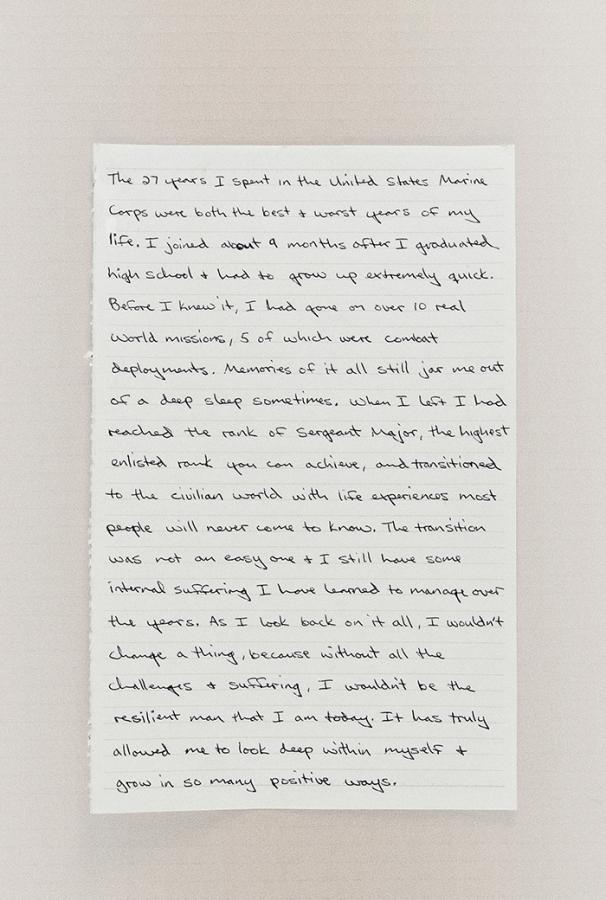 The 27 years I spent in the United States Marine
Corps were both the best & worst years of my
life. I joined about 9 months after I graduated
high school & had to grow up extremely quick.
Before I knew it, I had gone on over 10 real
world missions, 5 of which were combat
deployments. Memories of it all still jar me out
of a deep sleep sometimes. When I left I had
reached the rank of Sergeant Major, the highest
enlisted rank you can achieve, and transitioned
to the civilian world with life experiences most
people will never come to know. The transition
was not an easy one & I still have some
internal suffering I have learned to manage over
the years. As I look back on it all, I wouldn't
change a thing, because without all the
challenges & suffering, I wouldn't be the
resilient man that I am today. It has truly
allowed me to look deep within myself &
grow in so many positive ways.